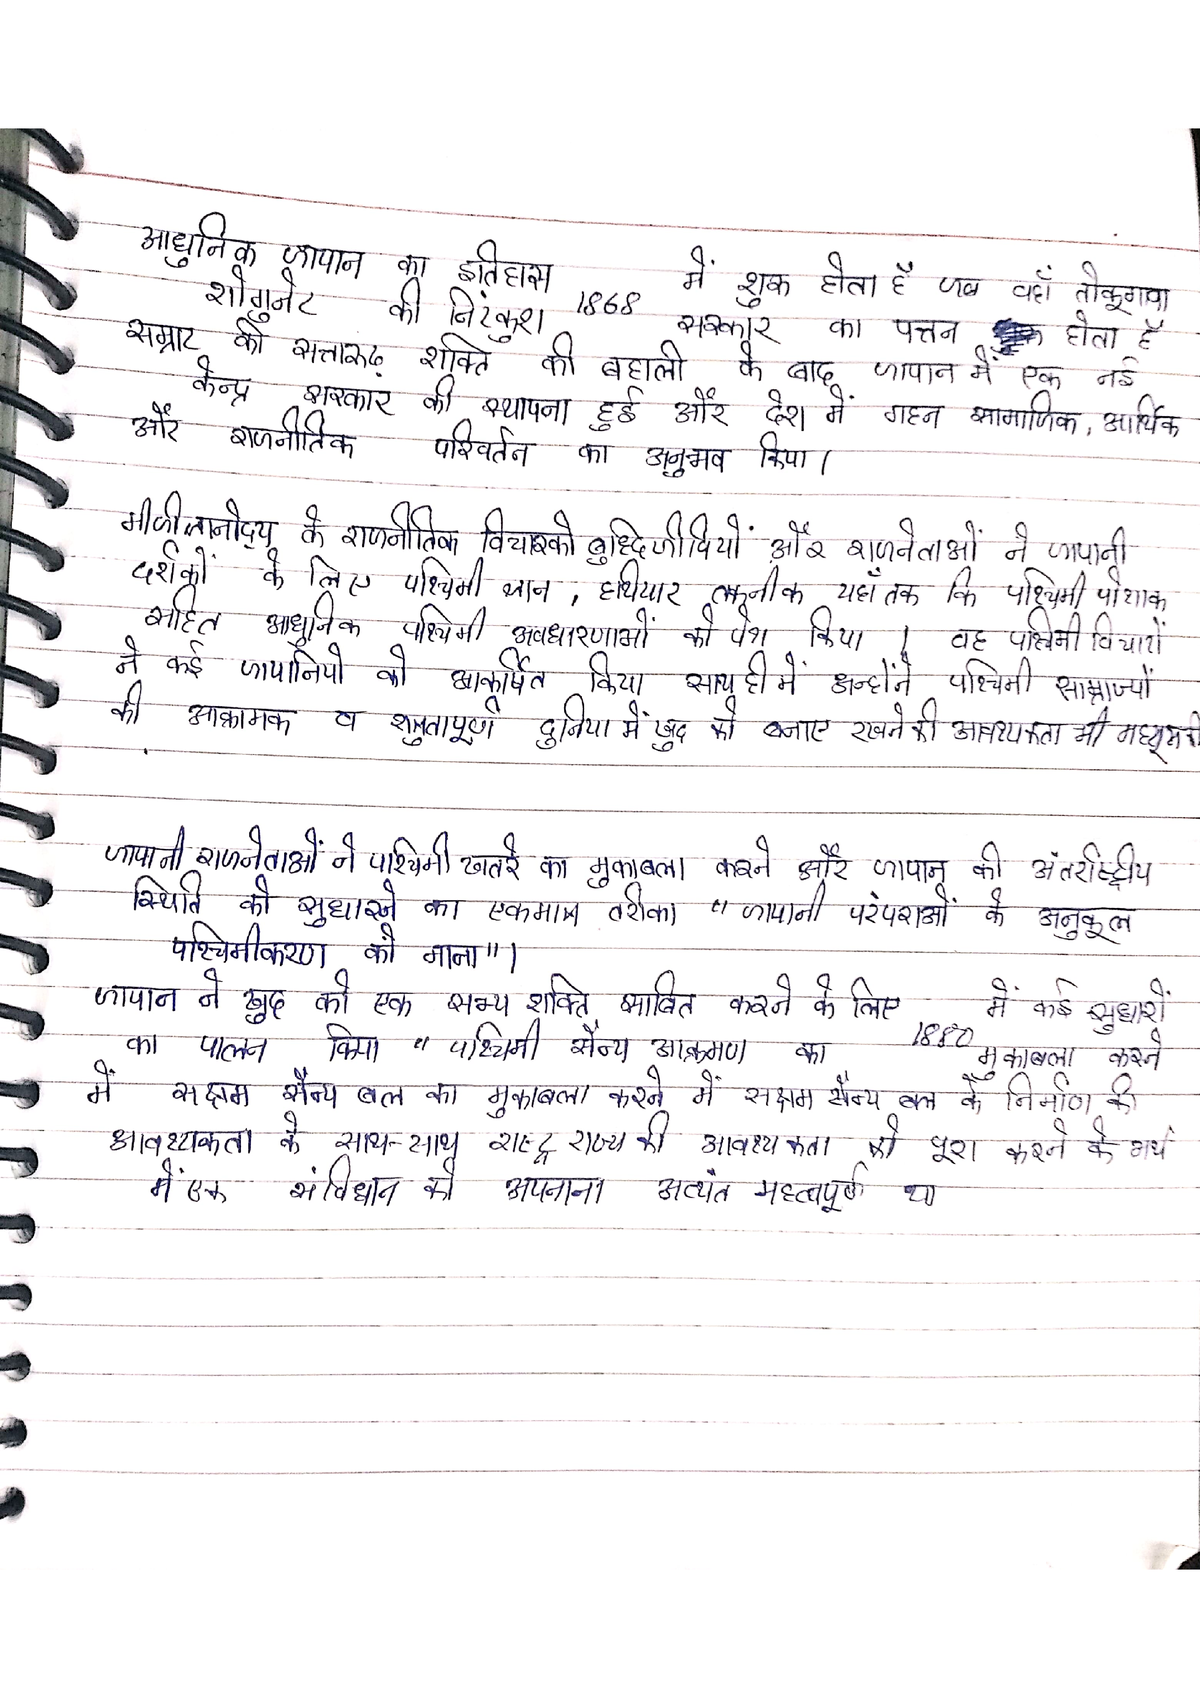 आधुनिक जापान का इतिहास 1868 में शुरू होता है जब वहाँ तोकूगावा
शोगुनेट की निरंकुश सरकार का पत्तन होता है
सम्राट की सत्तारूढ़ शक्ति की बहाली के बाद जापान में एक नई
केन्द्र सरकार की स्थापना हुई और देश में गहन सामाजिक, आर्थिक
और राजनीतिक परिवर्तन का अनुभव किया।
मीजी ज्ञानोदय के राजनीतिक विचारको बुध्दिजीवियों और राजनेताओं ने जापानी
दर्शकों के लिए पश्चिमी ज्ञान, हथियार तकनीक यहाँ तक कि पश्चिमी पोशाक
सहित आधुनिक पश्चिमी अवधारणाओं को पेश किया। वह पश्चिमी विचारों
ने कई जापानियो को आकर्षित किया साथ ही में उन्होंने पश्चिमी साम्राज्यों
की आक्रामक व शत्रुतापूर्ण दुनिया में खुद को बनाए रखने की आवश्यकता भी
जापानी राजनेताओं ने पश्चिमी खतरे का मुकाबला करने और जापान की अंतर्राष्ट्रीय
स्थिति को सुधारने का एकमात्र तरीका "जापानी परंपराओं के अनुकूल
पश्चिमीकरण को माना"।
जापान ने खुद को एक सभ्य शक्ति साबित करने के लिए 1880 में कई सुधारों
का पालन किया "पश्चिमी सैन्य आक्रमण का मुकाबला करने
में सक्षम सैन्य बल का मुकाबला करने में सक्षम सैन्य बल के निर्माण की
आवश्यकता के साथ-साथ राष्ट्र राज्य की आवश्यकता को पूरा करने के अर्थ
में एक संविधान को अपनाना अत्यंत महत्वपूर्ण था